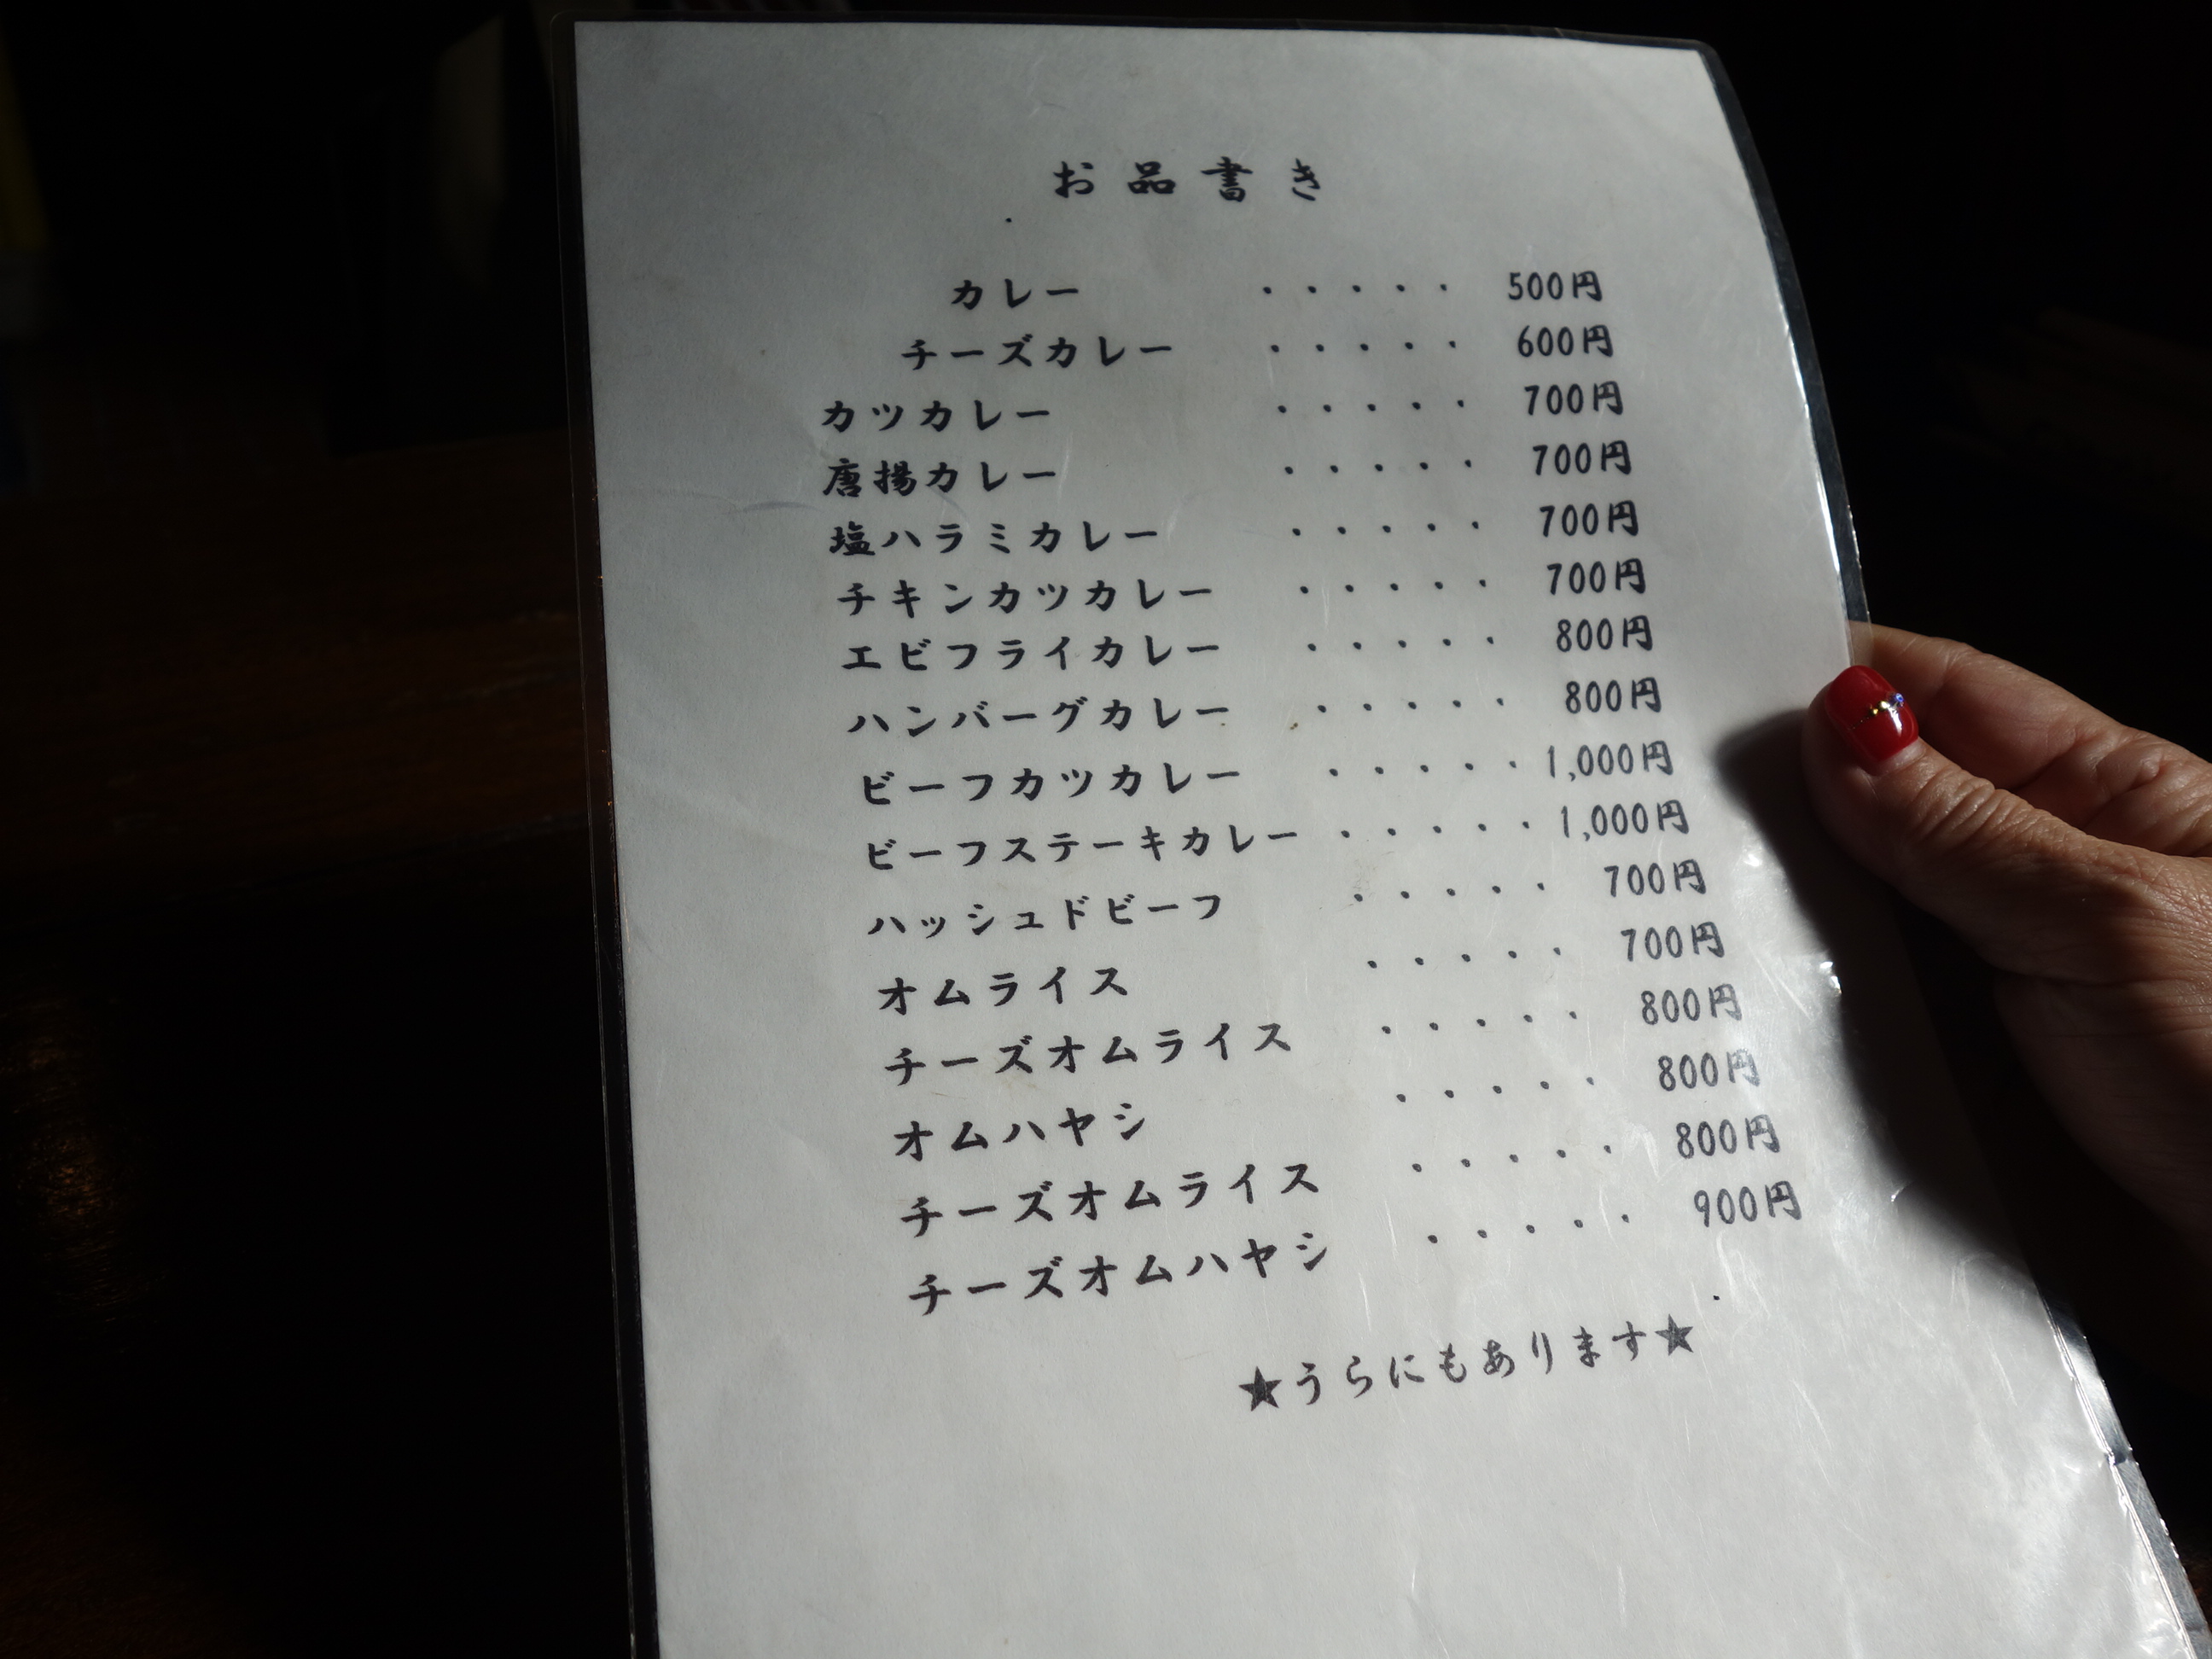 お品書き
カレー ・・・・・ 500円
チーズカレー ・・・・・ 600円
カツカレー ・・・・・ 700円
唐揚カレー ・・・・・ 700円
塩ハラミカレー ・・・・・ 700円
チキンカツカレー ・・・・・ 700円
エビフライカレー ・・・・・ 800円
ハンバーグカレー ・・・・・ 800円
ビーフカツカレー ・・・・・ 1,000円
ビーフステーキカレー ・・・・・ 1,000円
ハッシュドビーフ ・・・・・ 700円
オムライス ・・・・・ 700円
チーズオムライス ・・・・・ 800円
オムハヤシ ・・・・・ 800円
チーズオムライス ・・・・・ 800円
チーズオムハヤシ ・・・・・ 900円
★うらにもあります★